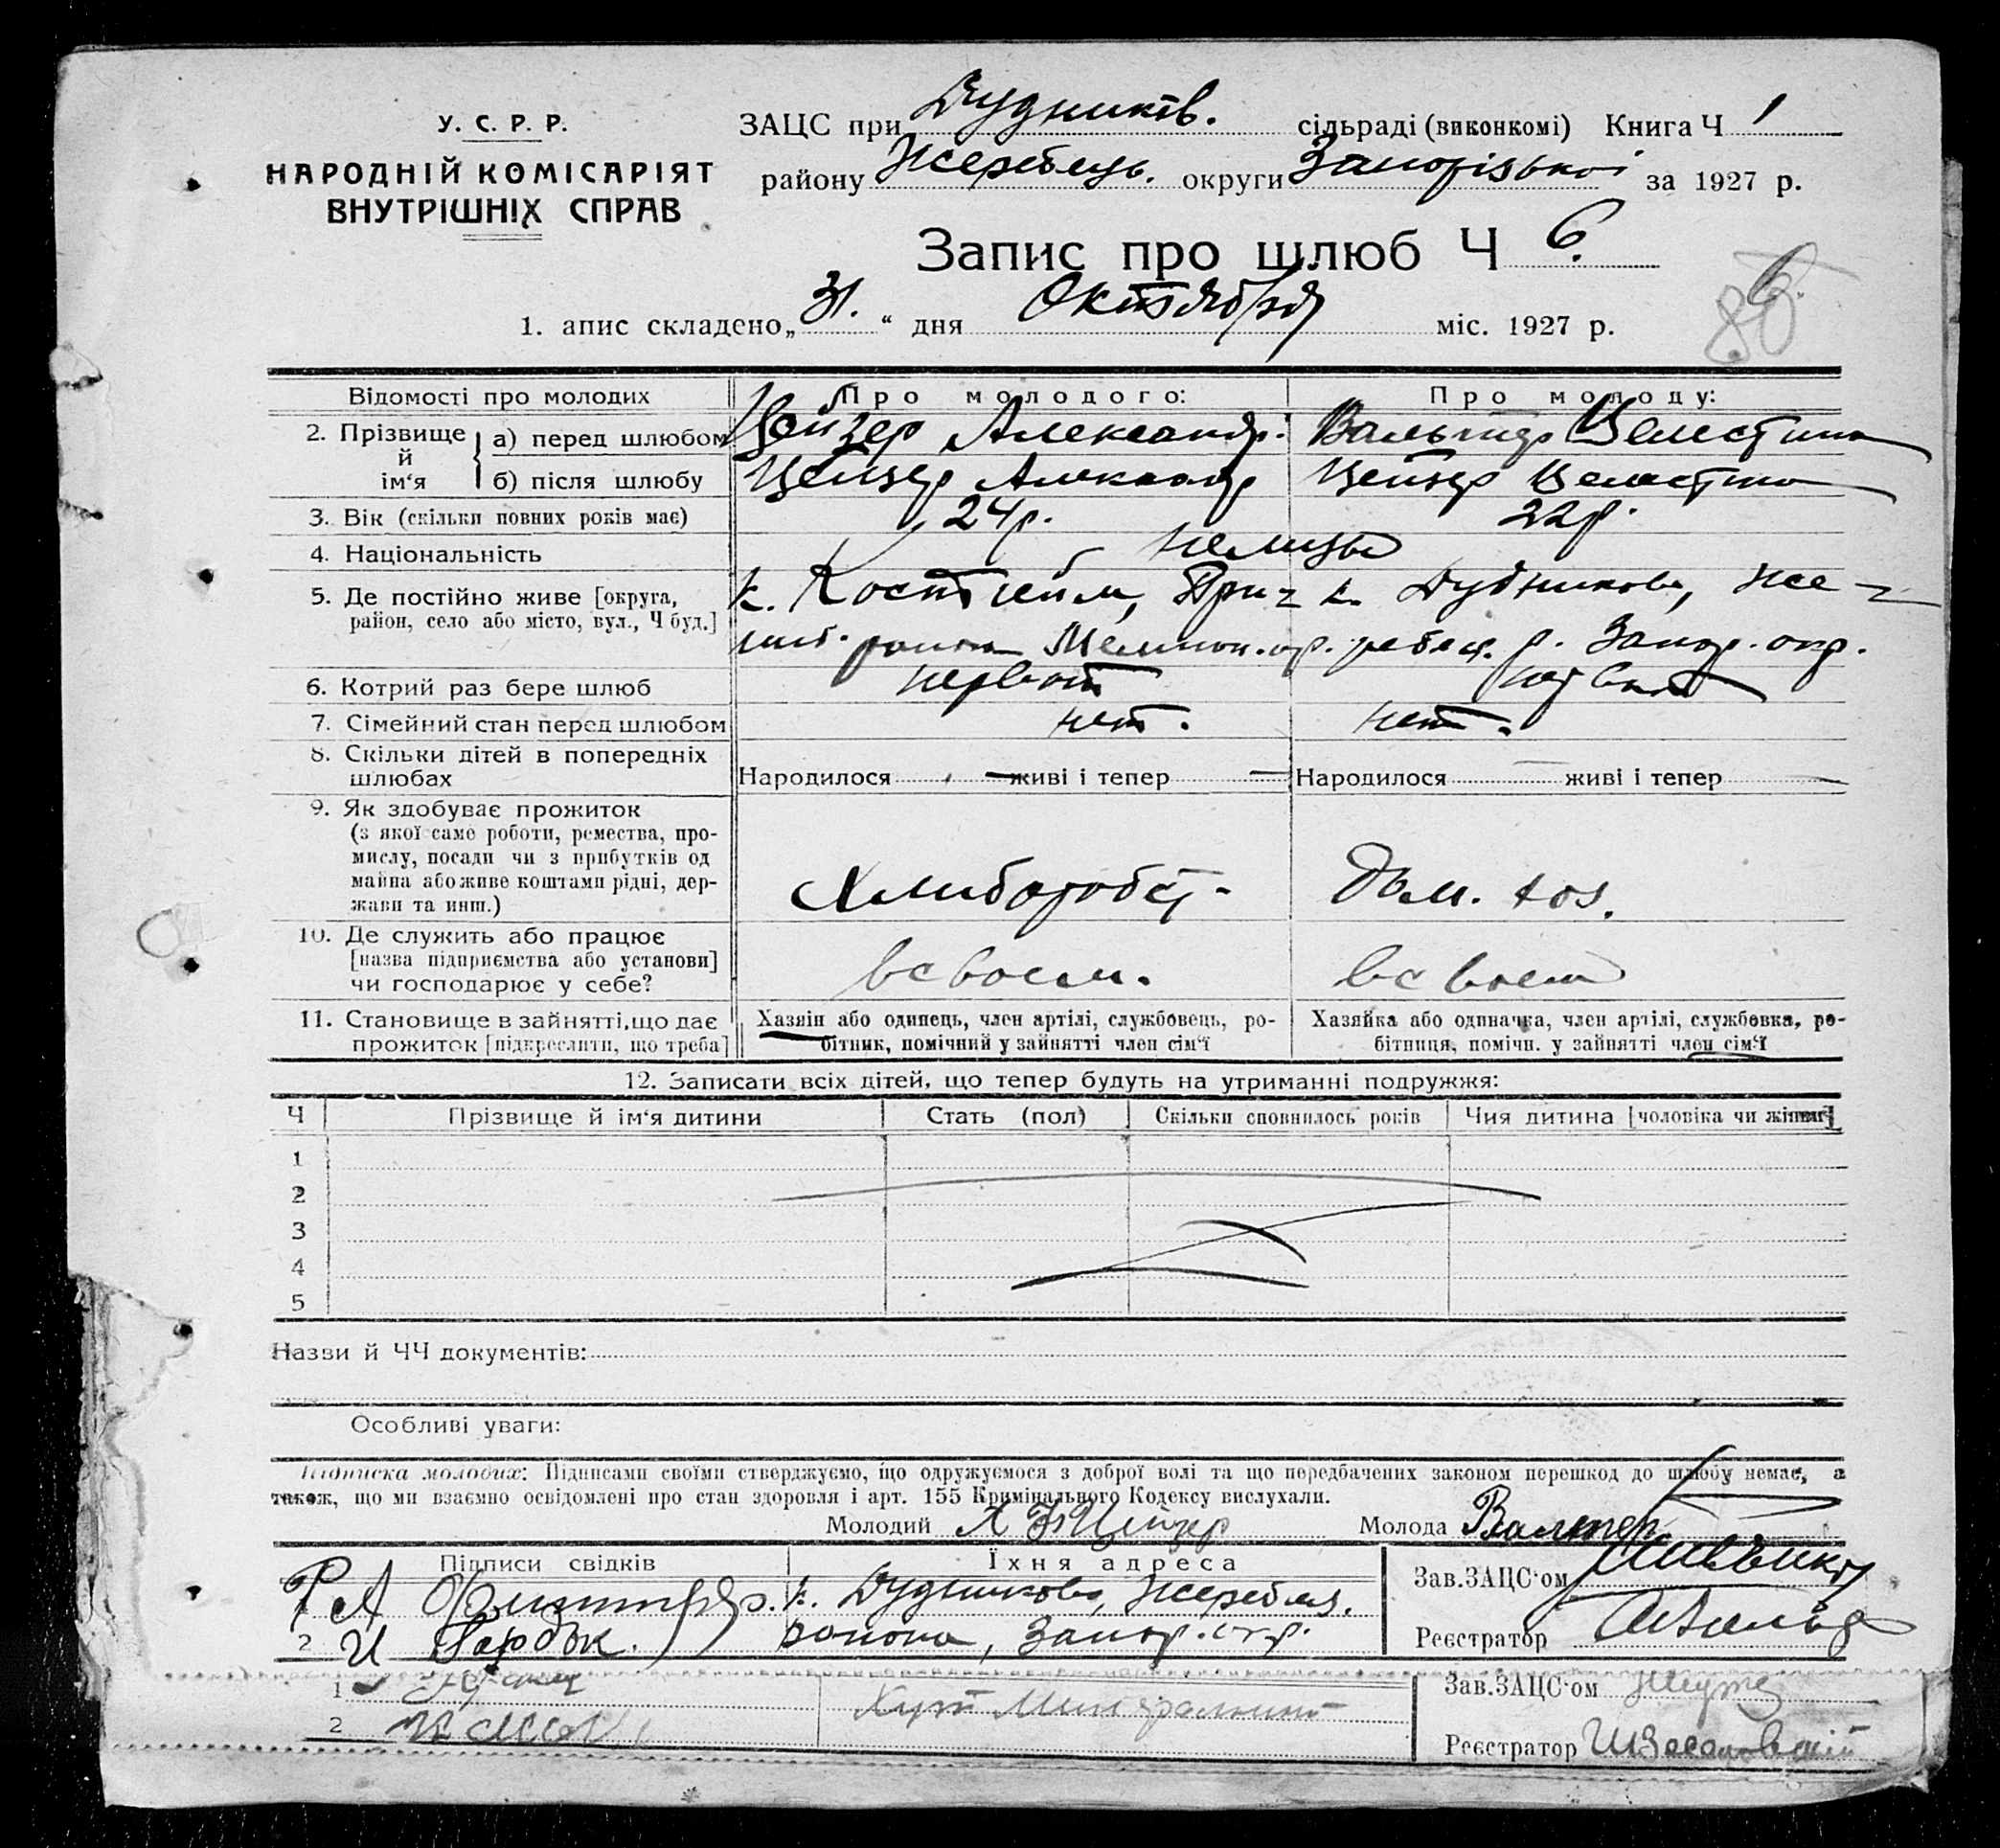 У. С. Р. Р.
НАРОДНІЙ КОМІСАРІЯТ
ВНУТРІШНІХ СПРАВ
ЗАЦС при Дудников. сільраді (виконкомі) Книга Ч 1
району Жеребець. округи Запорізької за 1927 р.
Запис про шлюб Ч 6.
1. апис складено „31.“ дня Октября міс. 1927 р.
Відомості про молодих Про молодого: Про молоду:
2. Прізвище й ім‘я а) перед шлюбом Цейзер Александр. Вальтер Целестина
б) після шлюбу Цейзер Александр Цейзер Целестина
3. Вік (скільки повних років має) 24р. 22р.
4. Національність немцы
5. Де постійно живе [округа, район, село або місто, вул., Ч буд.]
к. Костгейм, Приши́б. района Мелитоп. ок.
к. Дудниково, Жеребец. р. Запор. окр.
6. Котрий раз бере шлюб первый первый
7. Сімейний стан перед шлюбом нет. нет.
8. Скільки дітей в попередніх шлюбах Народилося — живі і тепер — Народилося — живі і тепер —
9. Як здобуває прожиток
(з якої само роботи, ремества, про-
мислу, посади чи з прибутків од
майна або живе коштами рідні, дер-
жави та инш.)
Хлибороб дом. хоз.
10. Де служить або працює
[назва підприємства або установи]
чи господарює у себе?
в своем. в своем
11. Становище в зайнятті, що дає
прожиток [підкреслити, що треба]
Хазяїн або одинець, член артілі, службовець, ро-
бітник, помічний у зайнятті член сім‘ї
Хазяйка або одиначка, член артілі, службовка, ро-
бітниця, помічн. у зайнятті член сім‘ї
12. Записати всіх дітей, що тепер будуть на утриманні подружжя:
Ч Прізвище й ім‘я дитини Стать (пол) Скільки сповнилось років Чия дитина [чоловіка чи жінки]
1
2
3
4
5
Назви й ЧЧ документів:
Особливі уваги:
Підписка молодих: Підписами своїми стверджуємо, що одружуємося з доброї волі та що передбачених законом перешкод до шлюбу немає, а
також, що ми взаємно освідомлені про стан здоровля і арт. 155 Кримінального Кодексу вислухали.
Молодий Цейзер Молода Валтер
Підписи свідків Їхня адреса Зав.ЗАЦС‘ом
1 А к. Дудниково, Жеребец.
2 И района, Запор. окр. Реєстратор
1 Хут Зав.ЗАЦС‘ом
2 Реєстратор